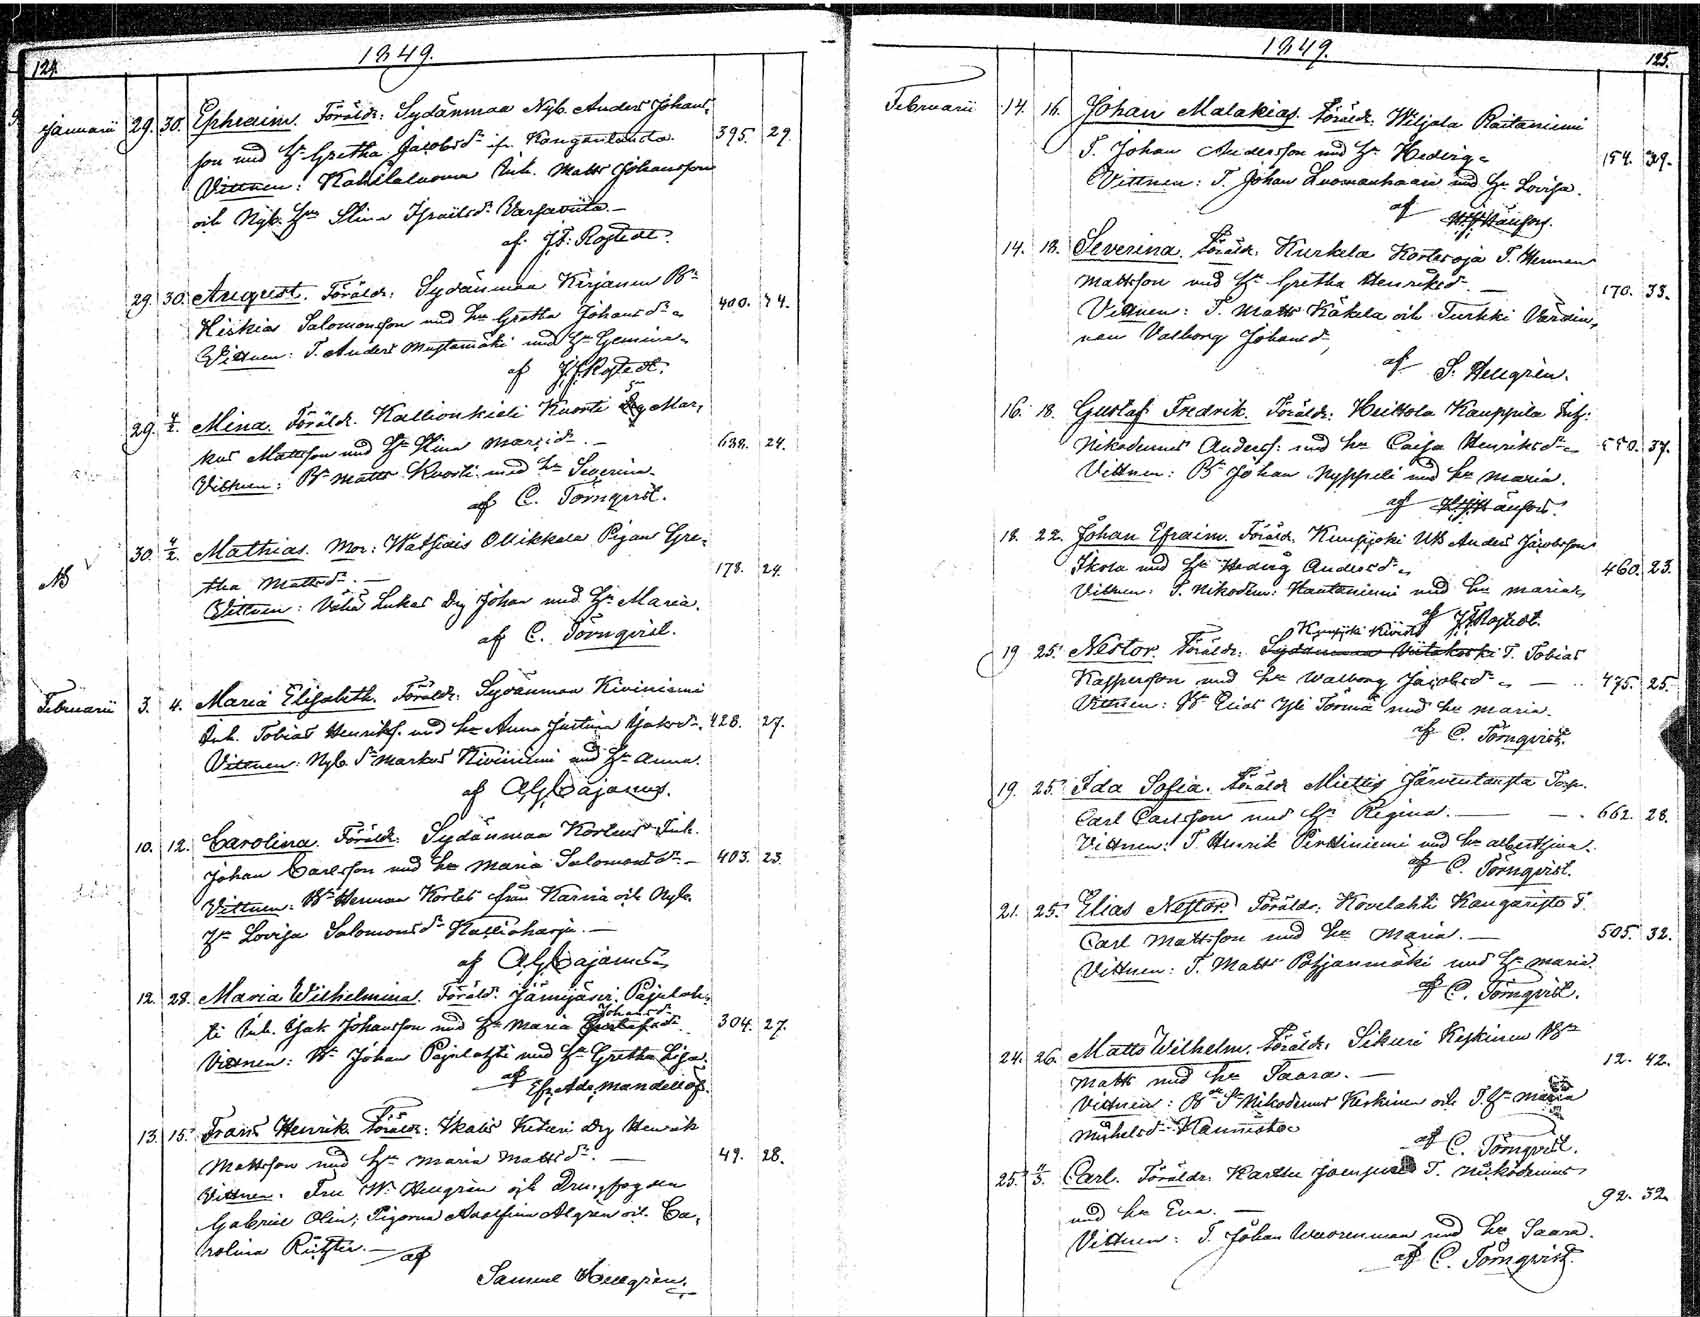 124.
1849.
Januarii 29. 30. Ephraim. Föräldr: Sydänmaa Nyb. Anders Johans,
son med Hu Gretha Jacobsdr Kanganlauta. 395. 29.
Vittnen: Inh. Matts Johansson
och Nyb. Hru Stina Israelsdr
af J. F. Rostedt.
29. 30. August. Föräldr: Sydänmaa Kirjanen Bn
Hiskias Salomonsson med Hu Gretha Johansdr 400. 34.
Vittnen: T. Anders Mustamäki med Hu Gemina
af J. F. Rostedt.
29. 4/2. Mina. Föräldr. Kallionkieli Kuosti Mar,
kus Mattsson med Hu Stina 638. 24.
Vittnen: Bn Matts Kuosti med hu Severina
af C. Törnqvist.
NB 30. 4/2. Mathias. Mor: Ollikkala Pigan Gre,
tha Mattsdr. 178. 24.
Vittnen: Lukas Drg Johan med Hu Maria.
af C. Törnqvist.
Februarii 3. 4. Maria Elisabeth. Föräldr: Sydänmaa Kiviniemi
Inh. Tobias Henriks. med hu Anna Justina Isaksdr. 428. 27.
Vittnen: Nyb. Sn Markus Kiviniemi med Hu Anna.
af A. G. Cajanus.
10. 12. Carolina. Föräldr: Sydänmaa Kortens Inh.
Johan Carlsson med hu Maria Salomonsdr. 403. 23.
Vittnen: Bn Herman Kortes från Karvia och Nyb.
Hu Lovisa Salomonsdr Kallioharju.
af A. G. Cajanus
12. 28. Maria Wilhelmina. Föräldr: Jämijärvi Pajulah,
Johansdr
ti Inh. Isak Johansson med Hu Maria Gustafsdr. 304. 27.
Vittnen: Bn Johan Pajulahti med Hu Gretha Lisa.
af Efr. Ad. Mandellöf.
13. 15. Frans Henrik. Föräldr: Ikalis Drg Henrik
Mattsson med Hu Maria Mattsdr. 49. 28.
Vittnen. Fru W. Hellgrén och Drängfogden
Gabriel Olin; Pigorna Algrén och Ca,
rolina
af
Samuel Hellgrén.
1849.
125.
Februarii 14. 16. Johan Malakias. Föräldr: Wiljala Raitaniemi
T. Johan Andersson med Hu Hedvig 154. 39.
Vittnen: T. Johan Luomanhaara med hu Lovisa.
af
14. 18. Severina. Föräldr: Kurkela Kortesoja T. Herman
Mattsson med Hu Gretha Henriksdr. 170. 33.
Vittnen: T. Matts Käkelä och Turkki Värdin,
nan Valborg Johansdr,
af S. Hellgrén.
16. 18. Gustaf Fredrik. Föräldr: Heittola Kauppila Inh:
Nikodemus Anderss: med hu Caisa Henriksdr 550. 37.
Vittnen: Bn Johan Nyppeli med hu Maria.
af
18. 22. Johan Efraim. Föräldr. Anders Jacobsson
Ikola med Hu Hedvig Andersdr 460. 23.
Vittnen: T. Nikodem: Hautaniemi med hu Maria
af J. F. Rostedt.
19 25. Nestor. Föräldr: Sydänmaa T. Tobias
Kaspersson med hu Walborg Jacobsdr 475. 25.
Vittnen: Bn Elias Yli Törmä med hu Maria.
af C. Törnqvist.
19. 25. Ida Sofia. Föräldr Miettis Järventausta Torp.
Carl Carlsson med Hu Regina. 662. 28.
Vittnen: T. Henrik Perttiniemi med hu Albertina.
af C. Törnqvist.
21. 25. Elias Nestor. Föräldr: Kovelahti Kangaristo T.
Carl Mattsson med hu Maria. 505. 32.
Vittnen: T. Matts Pohjanmäki med Hu Maria.
af C. Törnqvist.
24. 26. Matts Wilhelm. Föräldr: Sikuri Keskinen Bn
Matts med hu Saara. 12. 42.
Vittnen: Bde Sn Nikodemus Keskinen och T. Hu Maria
Michelsdr Hannisto
af C. Törnqvist.
25. 4/3. Carl. Föräldr: Karttu T. Nikodemus
med hu Eva. 92. 32.
Vittnen: T. Johan Wuorenmaa med hu Saara.
af C. Törnqvist.